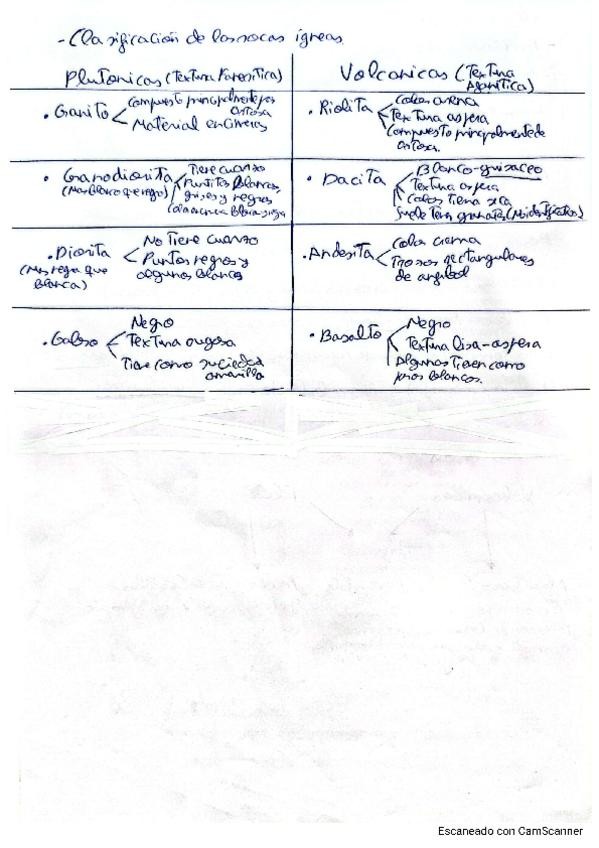 - Clasificación de las rocas ígneas.
Plutonicas (Textura Faneritica)
Volcanicas (Textura
Afanitica)
. Granito
Compuesto principalmente por
ortosa
Material en Cineros
. Riolita
Color crema
Textura aspera
Compuesto principalmente de
ortosa.
. Granodiorita
(Mas blanco que negro)
Tiene cuarzo
Puntitos blancos,
grises y negros
. Dacita
Blanco-grisaceo
Textura aspera
Color tiena
Suele tener granates (No identificados)
. Diorita
(Mas negra que
blanca)
No Tiene cuarzo
Puntos negros y
algunos blancos
. Andesita
Color crema
Trozos rectangulares
de anfibol
. Gabro
Negro
Textura rugosa
Tiene como suciedad
amarilla
. Basalto
Negro
Textura lisa-aspera
Algunos tienen como
poros blancos.
Escaneado con CamScanner